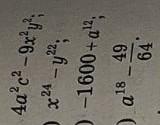 4a²c² − 9x²y²;
) x²⁴ − y²²;
) −1600 + a¹²;
) a¹⁸ − 49/64.